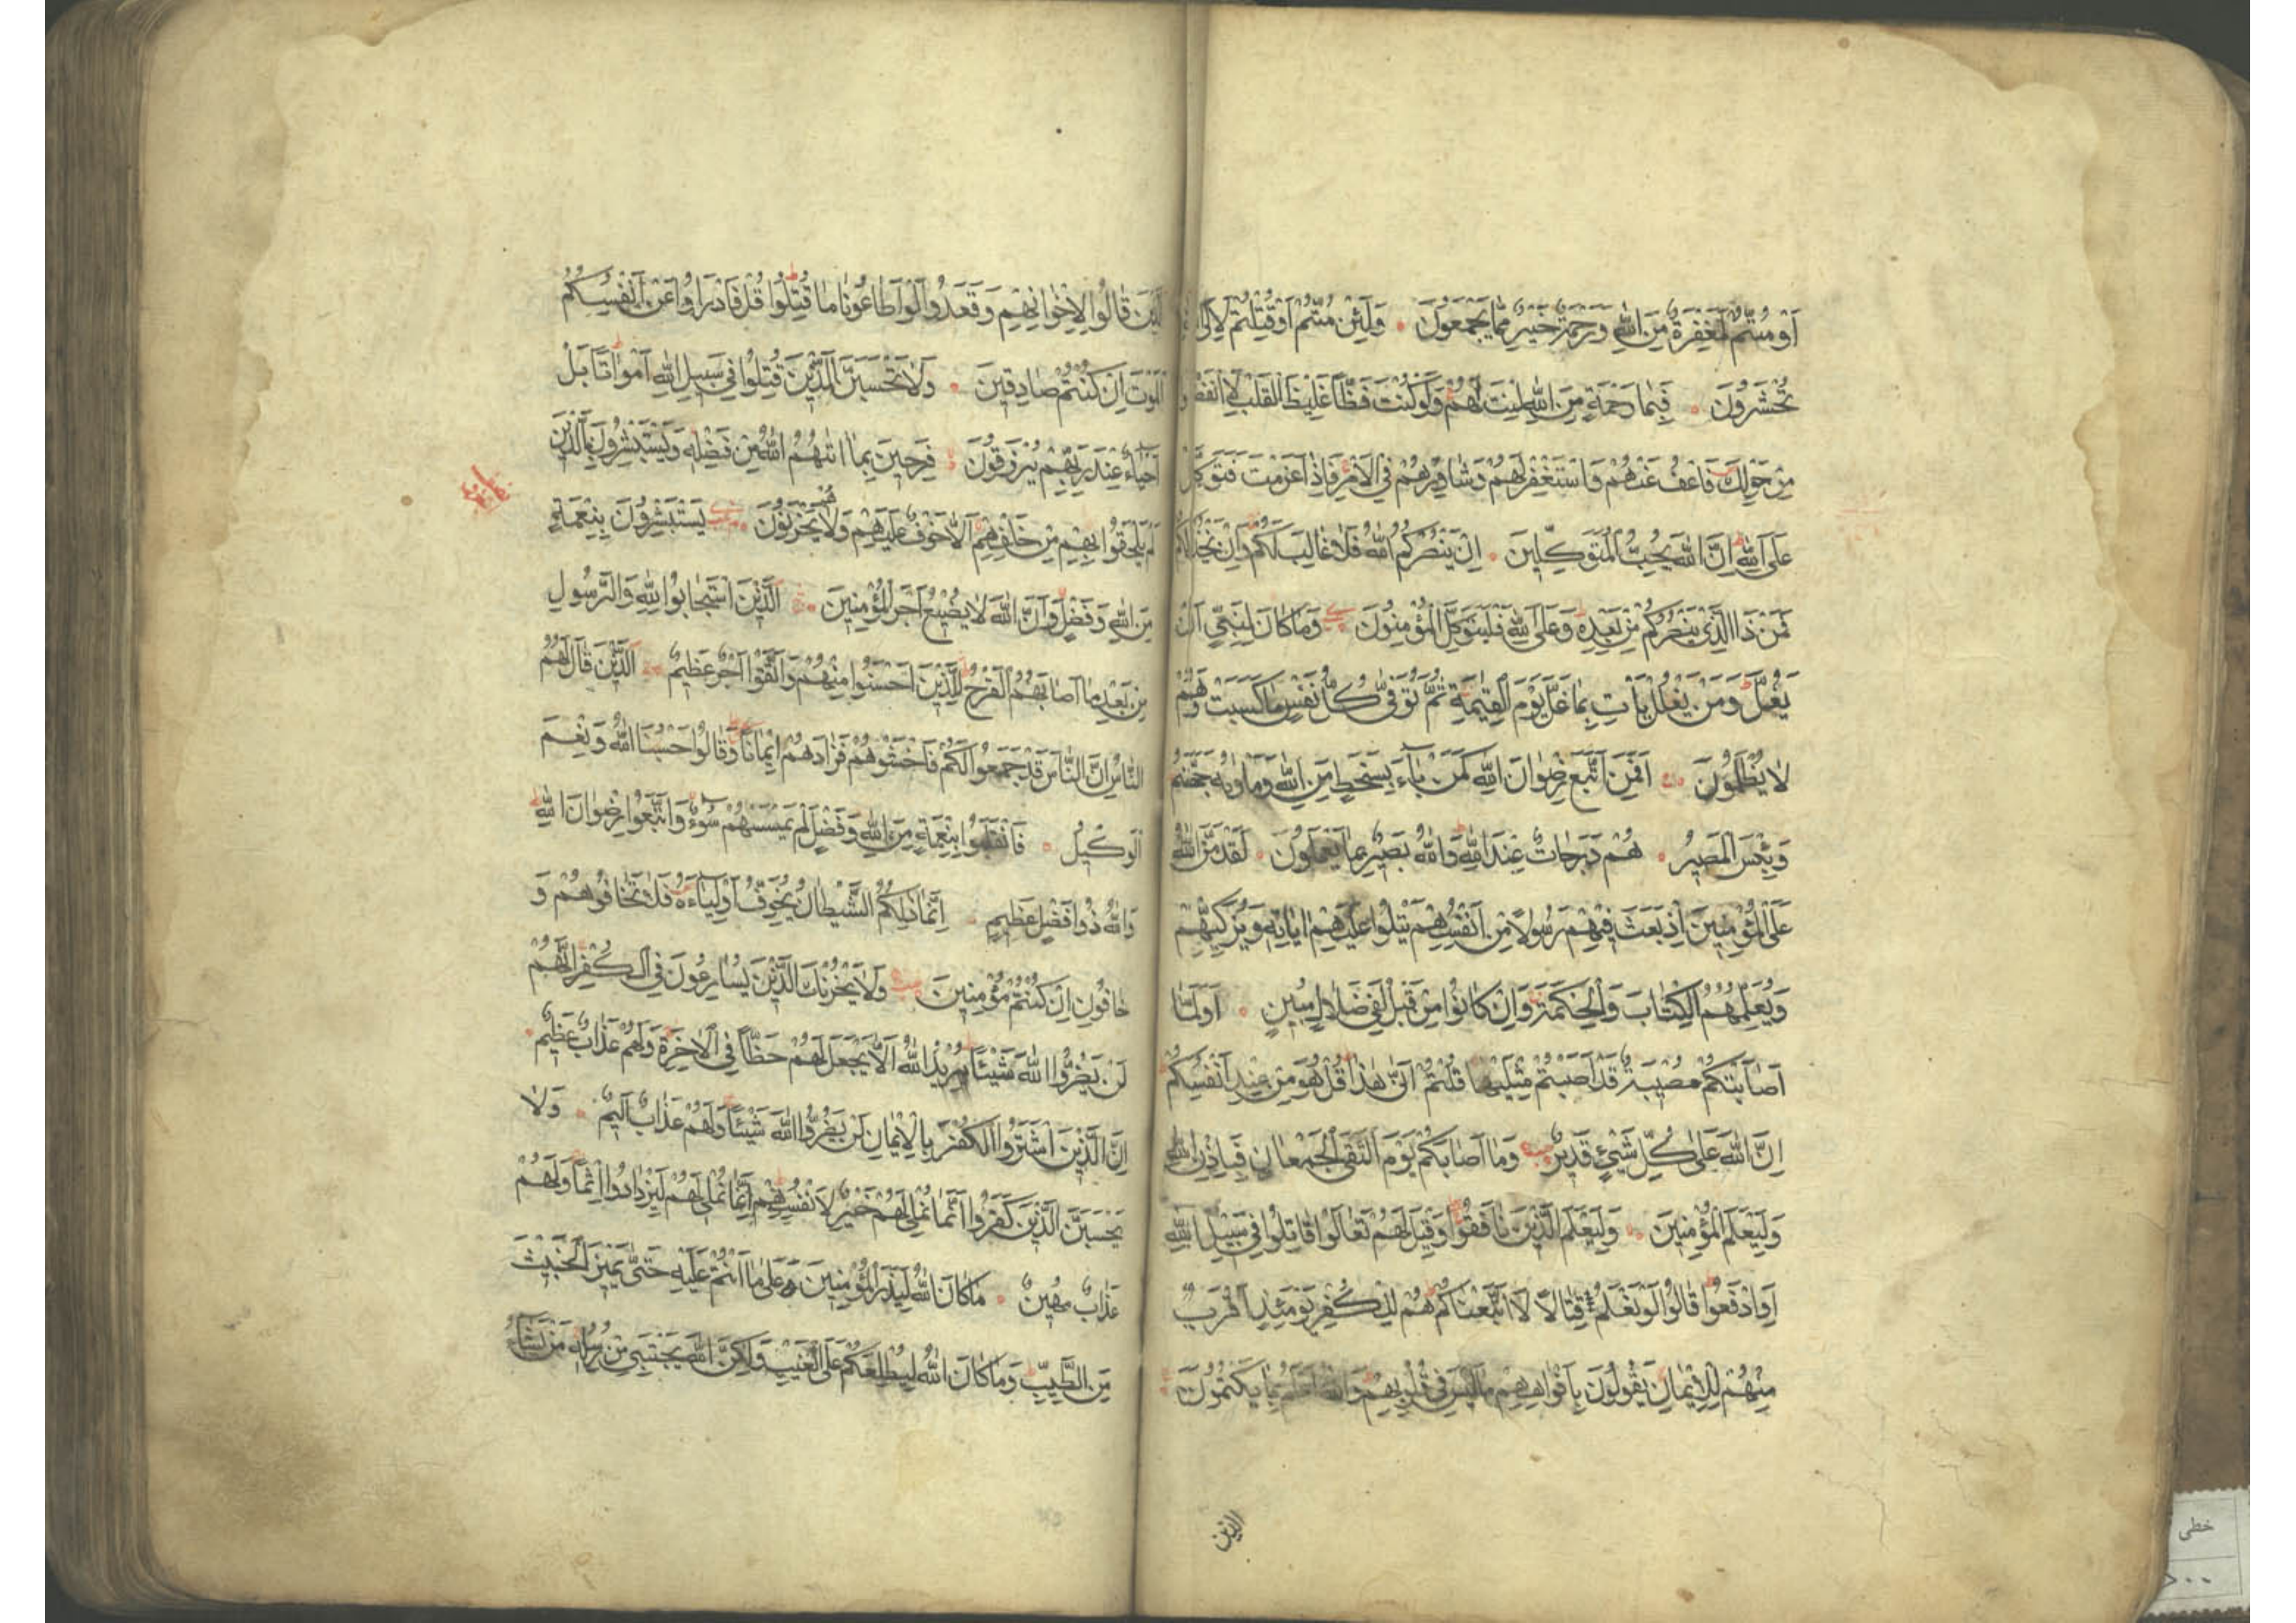 اَوْ مُتُّمْ لَمَغْفِرَةٌ مِنَ اللّٰهِ وَرَحْمَةٌ خَيْرٌ مِمَّا يَجْمَعُونَ وَلَئِنْ مُتُّمْ اَوْ قُتِلْتُمْ لَاِلَى اللّٰهِ
تُحْشَرُونَ فَبِمَا رَحْمَةٍ مِنَ اللّٰهِ لِنْتَ لَهُمْ وَلَوْ كُنْتَ فَظًّا غَلِيظَ الْقَلْبِ لَانْفَضُّوا
مِنْ حَوْلِكَ فَاعْفُ عَنْهُمْ وَاسْتَغْفِرْ لَهُمْ وَشَاوِرْهُمْ فِي الْاَمْرِ فَاِذَا عَزَمْتَ فَتَوَكَّلْ
عَلَى اللّٰهِ اِنَّ اللّٰهَ يُحِبُّ الْمُتَوَكِّلِينَ اِنْ يَنْصُرْكُمُ اللّٰهُ فَلَا غَالِبَ لَكُمْ وَاِنْ يَخْذُلْكُمْ
فَمَنْ ذَا الَّذِي يَنْصُرُكُمْ مِنْ بَعْدِهِ وَعَلَى اللّٰهِ فَلْيَتَوَكَّلِ الْمُؤْمِنُونَ وَمَا كَانَ لِنَبِيٍّ اَنْ
يَغُلَّ وَمَنْ يَغْلُلْ يَأْتِ بِمَا غَلَّ يَوْمَ الْقِيٰمَةِ ثُمَّ تُوَفّٰى كُلُّ نَفْسٍ مَا كَسَبَتْ وَهُمْ
لَا يُظْلَمُونَ اَفَمَنِ اتَّبَعَ رِضْوَانَ اللّٰهِ كَمَنْ بَاءَ بِسَخَطٍ مِنَ اللّٰهِ وَمَأْوٰيهُ جَهَنَّمُ
وَبِئْسَ الْمَصِيرُ هُمْ دَرَجَاتٌ عِنْدَ اللّٰهِ وَاللّٰهُ بَصِيرٌ بِمَا يَعْمَلُونَ لَقَدْ مَنَّ اللّٰهُ
عَلَى الْمُؤْمِنِينَ اِذْ بَعَثَ فِيهِمْ رَسُولًا مِنْ اَنْفُسِهِمْ يَتْلُوا عَلَيْهِمْ اٰيَاتِهِ وَيُزَكِّيهِمْ
وَيُعَلِّمُهُمُ الْكِتَابَ وَالْحِكْمَةَ وَاِنْ كَانُوا مِنْ قَبْلُ لَفِي ضَلَالٍ مُبِينٍ اَوَلَمَّا
اَصَابَتْكُمْ مُصِيبَةٌ قَدْ اَصَبْتُمْ مِثْلَيْهَا قُلْتُمْ اَنّٰى هٰذَا قُلْ هُوَ مِنْ عِنْدِ اَنْفُسِكُمْ
اِنَّ اللّٰهَ عَلٰى كُلِّ شَيْئٍ قَدِيرٌ وَمَا اَصَابَكُمْ يَوْمَ الْتَقَى الْجَمْعَانِ فَبِاِذْنِ اللّٰهِ
وَلِيَعْلَمَ الْمُؤْمِنِينَ وَلِيَعْلَمَ الَّذِينَ نَافَقُوا وَقِيلَ لَهُمْ تَعَالَوْا قَاتِلُوا فِي سَبِيلِ اللّٰهِ
اَوِ ادْفَعُوا قَالُوا لَوْ نَعْلَمُ قِتَالًا لَاتَّبَعْنَاكُمْ هُمْ لِلْكُفْرِ يَوْمَئِذٍ اَقْرَبُ
مِنْهُمْ لِلْاِيمَانِ يَقُولُونَ بِاَفْوَاهِهِمْ مَا لَيْسَ فِي قُلُوبِهِمْ وَاللّٰهُ اَعْلَمُ بِمَا يَكْتُمُونَ
الذين
الَّذِينَ قَالُوا لِاِخْوَانِهِمْ وَقَعَدُوا لَوْ اَطَاعُونَا مَا قُتِلُوا قُلْ فَادْرَؤُا عَنْ اَنْفُسِكُمُ
الْمَوْتَ اِنْ كُنْتُمْ صَادِقِينَ وَلَا تَحْسَبَنَّ الَّذِينَ قُتِلُوا فِي سَبِيلِ اللّٰهِ اَمْوَاتًا بَلْ
اَحْيَاءٌ عِنْدَ رَبِّهِمْ يُرْزَقُونَ فَرِحِينَ بِمَا اٰتٰيهُمُ اللّٰهُ مِنْ فَضْلِهِ وَيَسْتَبْشِرُونَ بِالَّذِينَ
لَمْ يَلْحَقُوا بِهِمْ مِنْ خَلْفِهِمْ اَلَّا خَوْفٌ عَلَيْهِمْ وَلَا هُمْ يَحْزَنُونَ يَسْتَبْشِرُونَ بِنِعْمَةٍ
مِنَ اللّٰهِ وَفَضْلٍ وَاَنَّ اللّٰهَ لَا يُضِيعُ اَجْرَ الْمُؤْمِنِينَ اَلَّذِينَ اسْتَجَابُوا لِلّٰهِ وَالرَّسُولِ
مِنْ بَعْدِ مَا اَصَابَهُمُ الْقَرْحُ لِلَّذِينَ اَحْسَنُوا مِنْهُمْ وَاتَّقَوْا اَجْرٌ عَظِيمٌ اَلَّذِينَ قَالَ لَهُمُ
النَّاسُ اِنَّ النَّاسَ قَدْ جَمَعُوا لَكُمْ فَاخْشَوْهُمْ فَزَادَهُمْ اِيمَانًا وَقَالُوا حَسْبُنَا اللّٰهُ وَنِعْمَ
الْوَكِيلُ فَانْقَلَبُوا بِنِعْمَةٍ مِنَ اللّٰهِ وَفَضْلٍ لَمْ يَمْسَسْهُمْ سُوءٌ وَاتَّبَعُوا رِضْوَانَ اللّٰهِ
وَاللّٰهُ ذُوا فَضْلٍ عَظِيمٍ اِنَّمَا ذٰلِكُمُ الشَّيْطَانُ يُخَوِّفُ اَوْلِيَاءَهُ فَلَا تَخَافُوهُمْ وَ
خَافُونِ اِنْ كُنْتُمْ مُؤْمِنِينَ وَلَا يَحْزُنْكَ الَّذِينَ يُسَارِعُونَ فِي الْكُفْرِ اِنَّهُمْ
لَنْ يَضُرُّوا اللّٰهَ شَيْئًا يُرِيدُ اللّٰهُ اَلَّا يَجْعَلَ لَهُمْ حَظًّا فِي الْاٰخِرَةِ وَلَهُمْ عَذَابٌ عَظِيمٌ
اِنَّ الَّذِينَ اشْتَرَوُا الْكُفْرَ بِالْاِيمَانِ لَنْ يَضُرُّوا اللّٰهَ شَيْئًا وَلَهُمْ عَذَابٌ اَلِيمٌ وَلَا
يَحْسَبَنَّ الَّذِينَ كَفَرُوا اَنَّمَا نُمْلِي لَهُمْ خَيْرٌ لِاَنْفُسِهِمْ اِنَّمَا نُمْلِي لَهُمْ لِيَزْدَادُوا اِثْمًا وَلَهُمْ
عَذَابٌ مُهِينٌ مَا كَانَ اللّٰهُ لِيَذَرَ الْمُؤْمِنِينَ عَلٰى مَا اَنْتُمْ عَلَيْهِ حَتّٰى يَمِيزَ الْخَبِيثَ
مِنَ الطَّيِّبِ وَمَا كَانَ اللّٰهُ لِيُطْلِعَكُمْ عَلَى الْغَيْبِ وَلٰكِنَّ اللّٰهَ يَجْتَبِي مِنْ رُسُلِهِ مَنْ يَشَاءُ
خطی